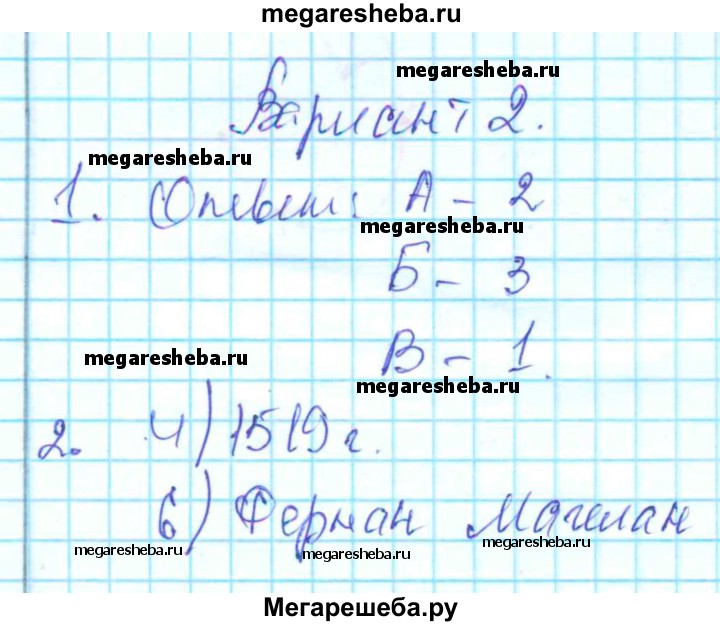 megaresheba.ru
megaresheba.ru
Вариант 2.
megaresheba.ru
1. Ответ: А - 2
megaresheba.ru
Б - 3
megaresheba.ru
В - 1.
megaresheba.ru
2. 4) 1519 г.
6) Фернан Магелан
megaresheba.ru
megaresheba.ru
megaresheba.ru
Мегарешеба.ру